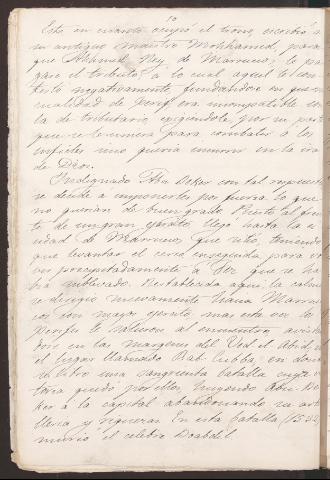 10
Este en cuanto ocupó el trono, escribió a
su antiguo maestro Mohhamed, para
que Ahmed, Rey de Marruecos, le pa
gase el tributo, a lo cual aquel le con
testó negativamente fundandose en que su
cualidad de Xerif era incompatible con
la de tributario, exigiendole por su parte
que se le uniera para combatir á los
infieles sino queria incurrir en la ira
de Dios.
Indignado Abu Beker con tal respuesta
se decide a imponerles por fuerza lo que
no querian de buen grado. Puesto al fren
te de un gran ejercito llegó hasta la ci
udad de Marruecos, que sitió, teniendo
que levantar el cerco enseguida, para vol
ver precipitadamente a Fez que se ha
bia sublevado. Restablecida aqui la calma
se dirigió nuevamente hacia Marrue
cos con mayor ejercito, mas esta vez los
Xerifes le salieron al encuentro avistan
dose en las margenes del Ued el Abid, en
el lugar llamado Bab-Cubba, en donde
se libró una sangrienta batalla cuya vic
toria quedó por ellos, huyendo Abu-Be
ker á la capital abandonando su arti
lleria y riquezas. En esta batalla (1532)
murió el celebre Boabdil